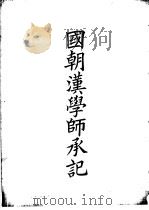 國朝漢學師承記